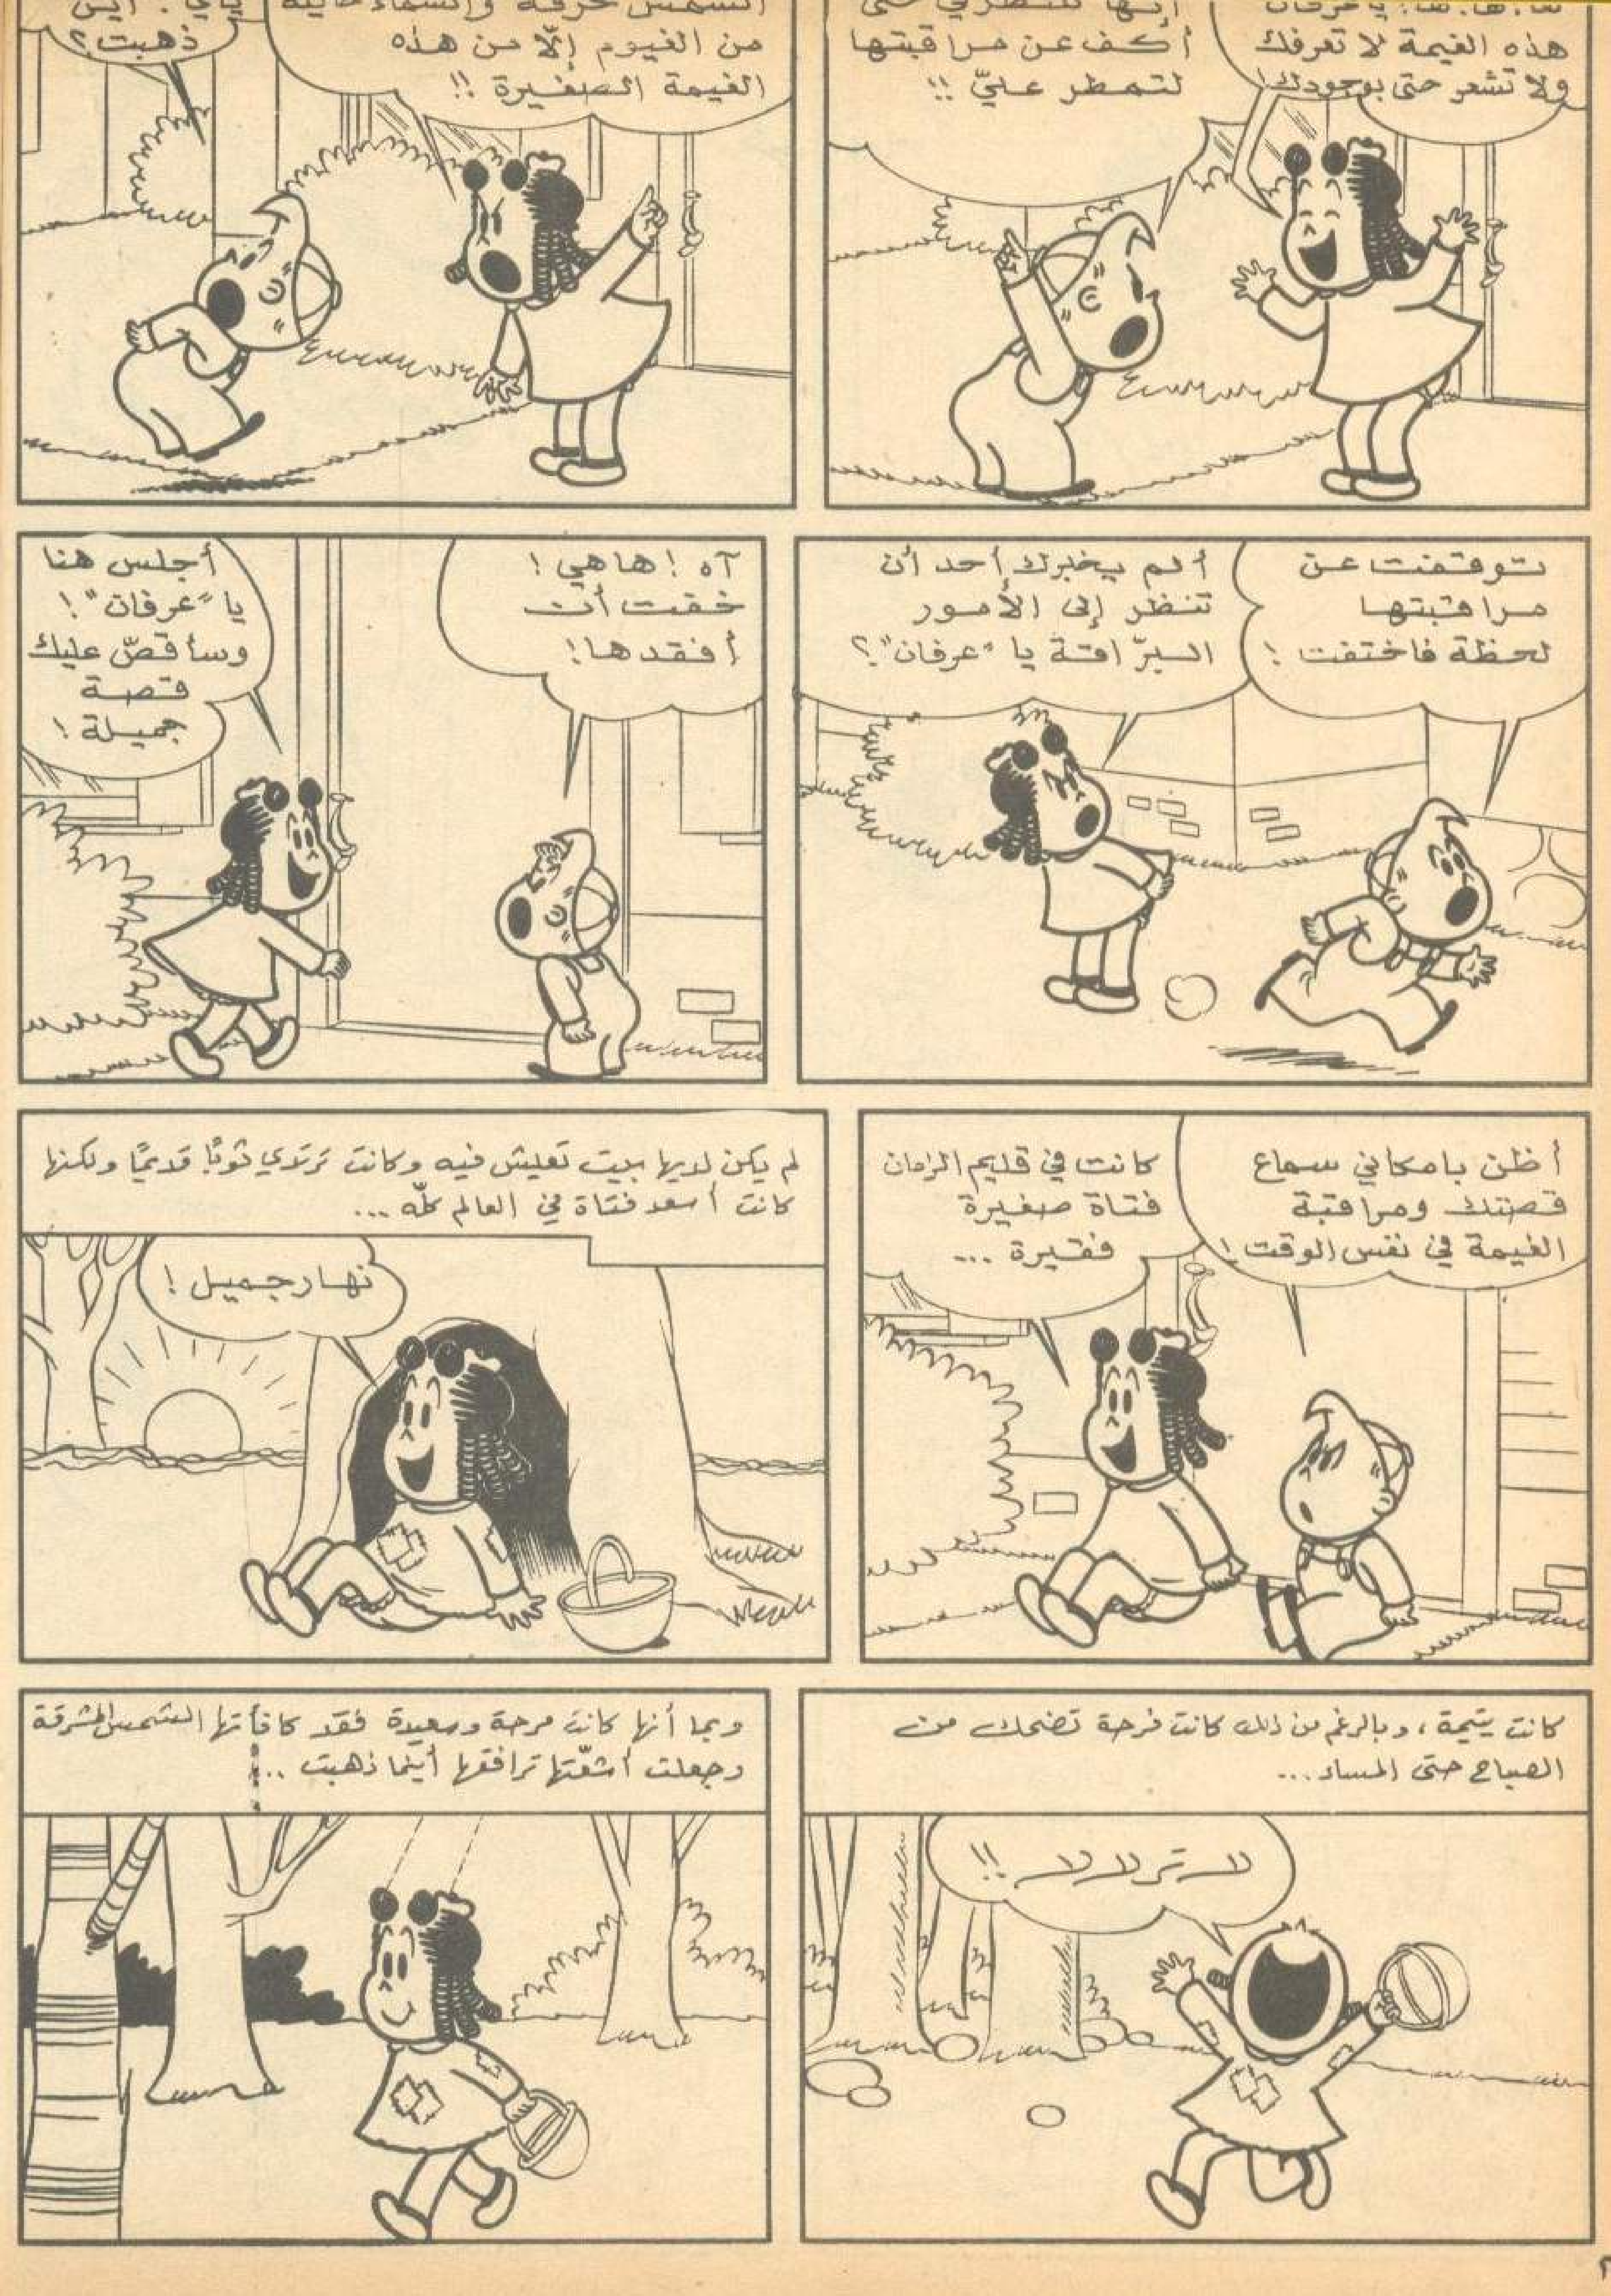 ها. ها. ها. يا عرفان
هذه الغيمة لا تعرفك
ولا تشعر حتى بوجودك!
أكف عن مراقبتها
لتمطر عليّ !!
من الغيوم إلّا من هذه
الغيمة الصغيرة !!
ذهبت؟
توقفت عن
مراقبتها
لحظة فاختفت !
ألم يخبرك أحد أن
تنظر إلى الأمور
البرّاقة يا "عرفان"؟
آه ! ها هي !
خفت أن
أفقدها!
أجلس هنا
يا "عرفان" !
وسأقصّ عليك
قصة
جميلة !
أظن بامكاني سماع
قصتك ومراقبة
الغيمة في نفس الوقت !
كانت في قديم الزمان
فتاة صغيرة
فقيرة ...
لم يكن لديها بيت تعيش فيه وكانت ترتدي ثوبًا قديمًا ولكنها
كانت أسعد فتاة في العالم كلّه ...
نهار جميل !
كانت يتيمة ، وبالرغم من ذلك كانت فرحة تضحك من
الصباح حتى المساء ...
لا تر لا لا !!
وبما أنها كانت مرحة وسعيدة فقد كافأتها الشمس المشرقة
وجعلت أشعّتها ترافقها أينما ذهبت ...